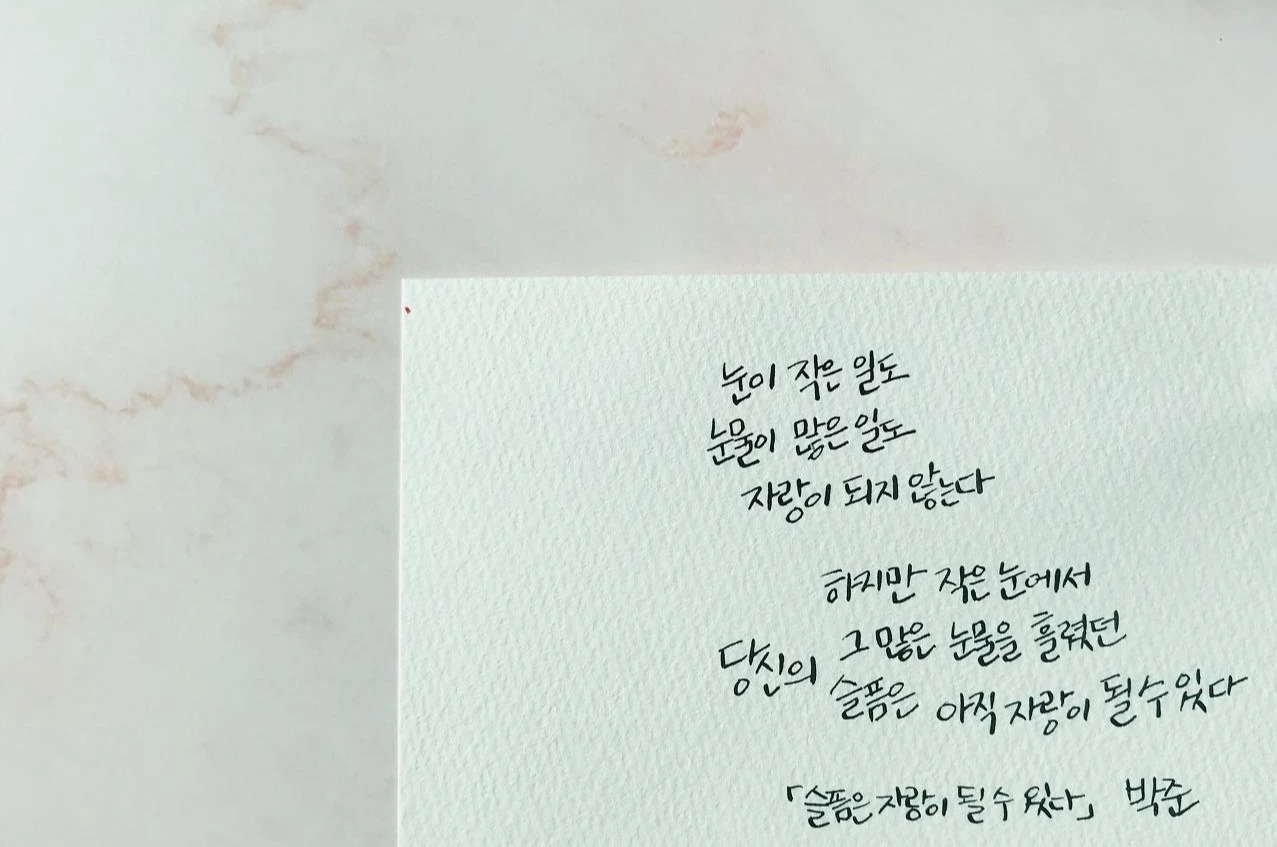 눈이 작은 일도
눈물이 많은 일도
자랑이 되지 않는다
하지만 작은 눈에서
그 많은 눈물을 흘렸던
당신의 슬픔은 아직 자랑이 될 수 있다
「슬픔은 자랑이 될 수 있다」 박준